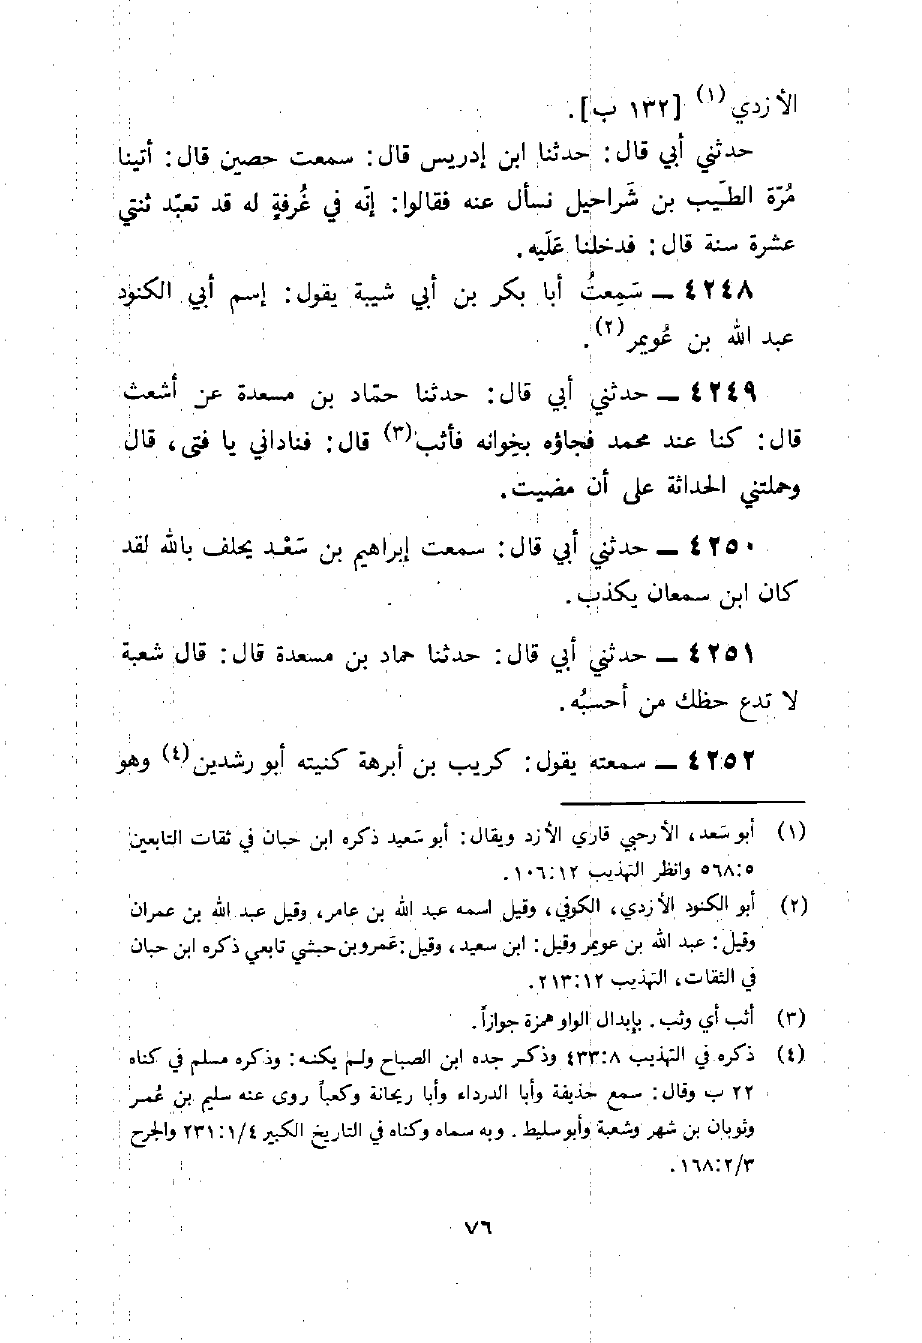 الأزدي (١) [١٣٢ ب].
حدثني أبي قال: حدثنا ابن إدريس قال: سمعت حصين قال: أتينا
مُرّة الطّيب بن شَراحيل نسأل عنه فقالوا: إنّه في غُرفةٍ له قد تعبّد ثنتي
عشرة سنة قال: فدخلنا عَلَيه.
٤٢٤٨ ــ سَمِعتُ أبا بكر بن أبي شيبة يقول: إسم أبي الكنود
عبد الله بن عُويمر (٢).
٤٢٤٩ ــ حدثني أبي قال: حدثنا حمّاد بن مسعدة عن أشعث
قال: كنا عند محمد فجاؤه بخوانه فأثب (٣) قال: فناداني يا فتى، قال
وحملتني الحداثة على أن مضيت.
٤٢٥٠ ــ حدثني أبي قال: سمعت إبراهيم بن سَعْد يحلف بالله لقد
كان ابن سمعان يكذب.
٤٢٥١ ــ حدثني أبي قال: حدثنا حماد بن مسعدة قال: قال شعبة
لا تدع حظك من أحسبُه.
٤٢٥٢ ــ سمعته يقول: كريب بن أبرهة كنيته أبو رشدين (٤) وهو
(١) أبو سَعد، الأرحبي قاري الأزد ويقال: أبو سَعيد ذكره ابن حبان في ثقات التابعين
٥٦٨:٥ وانظر التهذيب ١٠٦:١٢.
(٢) أبو الكنود الأزدي، الكوفي، وقيل اسمه عبد الله بن عامر، وقيل عبد الله بن عمران
وقيل: عبد الله بن عويمر وقيل: ابن سعيد، وقيل: عَمرو بن حبشي تابعي ذكره ابن حبان
في الثقات، التهذيب ٢١٣:١٢.
(٣) أثب أي وثب. بإبدال الواو همزة جوازاً.
(٤) ذكره في التهذيب ٤٣٣:٨ وذكر جده ابن الصباح ولم يكنه: وذكره مسلم في كناه
٢٢ ب وقال: سمع حذيفة وأبا الدرداء وأبا ريحانة وكعباً روى عنه سليم بن عُمر
وثوبان بن شهر وشعبة وأبو سليط. وبه سماه وكناه في التاريخ الكبير ٢٣١:١/٤ والجرح
١٦٨:٢/٣.
٧٦